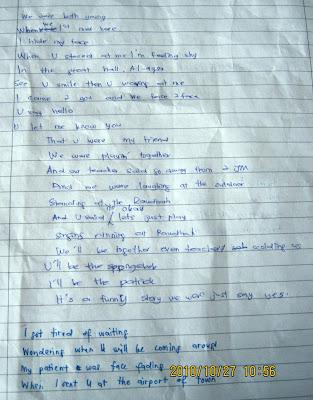 We were both young
When we 1st met here
I hide my face
When U stared at me I'm feeling shy
In the great hall, Al-
See U smile then U waving at me
I cause 2 got and We face 2 face
U say hello
U let me know you
That U were my friend
We were playin' together
And our teacher said go away from 2 JM
And we were laughing at the outdoor
Standing at the Raudhah
And U said okay lets just play
Singing running at Raudhah
We'll be together even teachers scolding us
U'll be the spongebob
I'll be the patrick
It's a funny story we wor' just say yes.
I get tired of waiting
Wondering when U will be coming around
My patient was face fading
When I sent U at the airport of town
2010/10/27 10:56